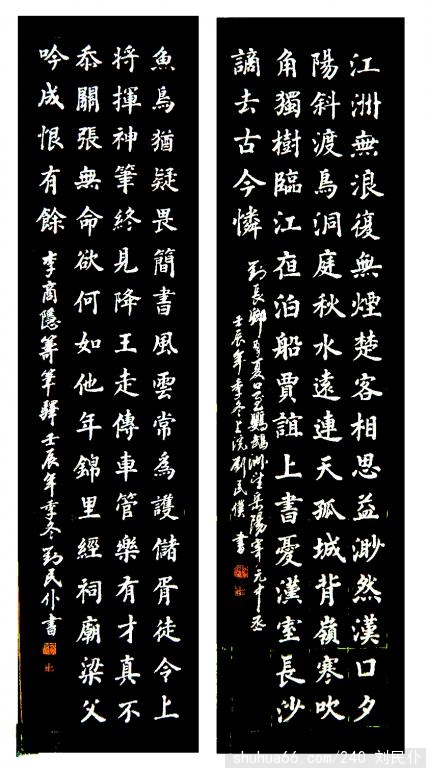 江洲無浪復無煙楚客相思益渺然漢口夕
陽斜渡鳥洞庭秋水遠連天孤城背嶺寒吹
角獨樹臨江夜泊船賈誼上書憂漢室長沙
謫去古今憐
劉長卿自夏口至鸚鵡洲望岳陽寄元中丞
壬辰年季冬上浣劉民僕書
魚鳥猶疑畏簡書風雲常爲護儲胥徒令上
将揮神筆終見降王走傳車管樂有才真不
忝關張無命欲何如他年錦里經祠廟梁父
吟成恨有餘 李商隱籌筆驛壬辰年季冬劉民仆書
shuhua66.com/240 刘民仆